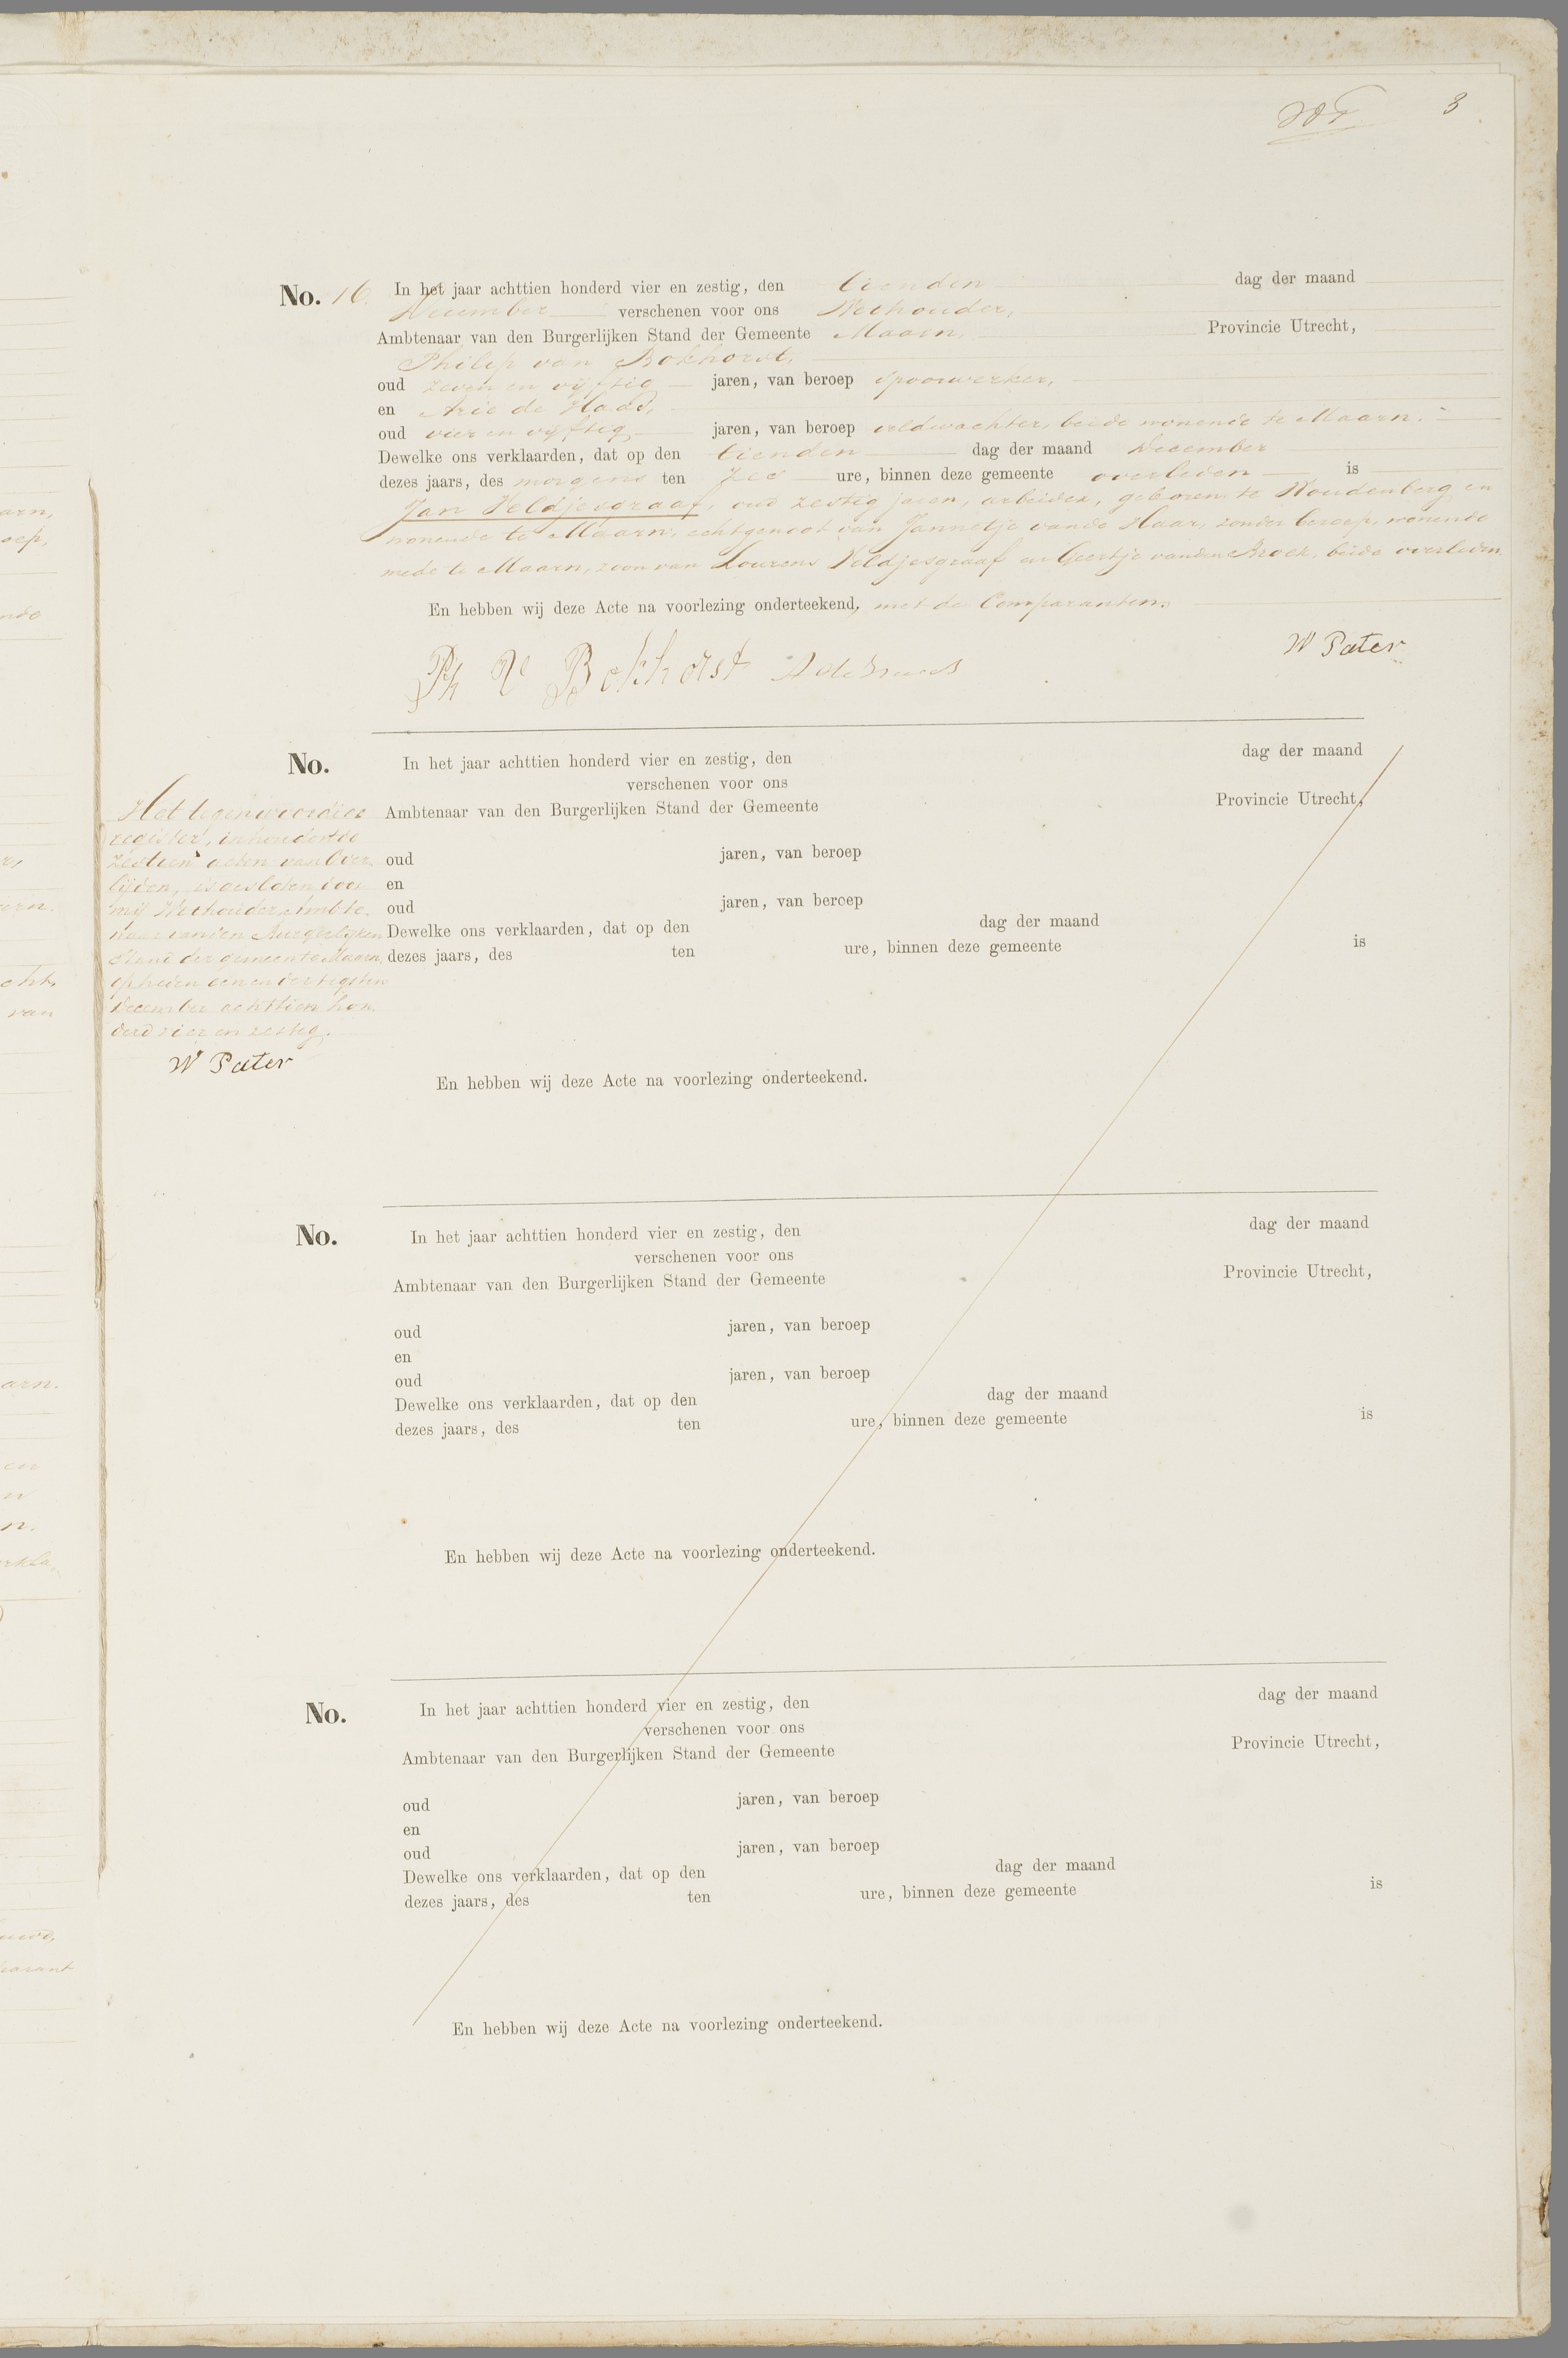 3
No. 16. In het jaar achttien honderd vier en zestig, den tienden dag der maand
December verschenen voor ons Wethouder,
Ambtenaar van den Burgerlijken Stand der Gemeente Maarn, Provincie Utrecht,
Philip van Bokhorst,
oud zeven en vijftig jaren, van beroep spoorwerker,
en Arie de Haas,
oud vier en vijftig jaren, van beroep veldwachter, beide wonende te Maarn.
Dewelke ons verklaarden, dat op den tienden dag der maand December
dezes jaars, des morgens ten zes ure, binnen deze gemeente overleden is
Jan Veldjesgraaf, oud zestig jaren, arbeider, geboren te Woudenberg en
wonende te Maarn, echtgenoot van Jannetje van de Haar, zonder beroep, wonende
mede te Maarn, zoon van Lourens Veldjesgraaf en Geertje van den Broek, beide overleden.
En hebben wij deze Acte na voorlezing onderteekend, met de Comparanten.
Ph V Bokhorst A de Haas W Pater
No. In het jaar achttien honderd vier en zestig, den dag der maand
verschenen voor ons
Ambtenaar van den Burgerlijken Stand der Gemeente Provincie Utrecht,
oud jaren, van beroep
en
oud jaren, van beroep
Dewelke ons verklaarden, dat op den dag der maand
dezes jaars, des ten ure, binnen deze gemeente is
En hebben wij deze Acte na voorlezing onderteekend.
Het tegenwoordige
register, inhoudende
zestien acten van Over
lijden, is gesloten door
mij Wethouder Ambte
naar van den Burgerlijken
Stand der gemeente Maarn,
op heden een en dertigsten
December achttien hon
derd vier en zestig.
W Pater
No. In het jaar achttien honderd vier en zestig, den dag der maand
verschenen voor ons
Ambtenaar van den Burgerlijken Stand der Gemeente Provincie Utrecht,
oud jaren, van beroep
en
oud jaren, van beroep
Dewelke ons verklaarden, dat op den dag der maand
dezes jaars, des ten ure, binnen deze gemeente is
En hebben wij deze Acte na voorlezing onderteekend.
No. In het jaar achttien honderd vier en zestig, den dag der maand
verschenen voor ons
Ambtenaar van den Burgerlijken Stand der Gemeente Provincie Utrecht,
oud jaren, van beroep
en
oud jaren, van beroep
Dewelke ons verklaarden, dat op den dag der maand
dezes jaars, des ten ure, binnen deze gemeente is
En hebben wij deze Acte na voorlezing onderteekend.